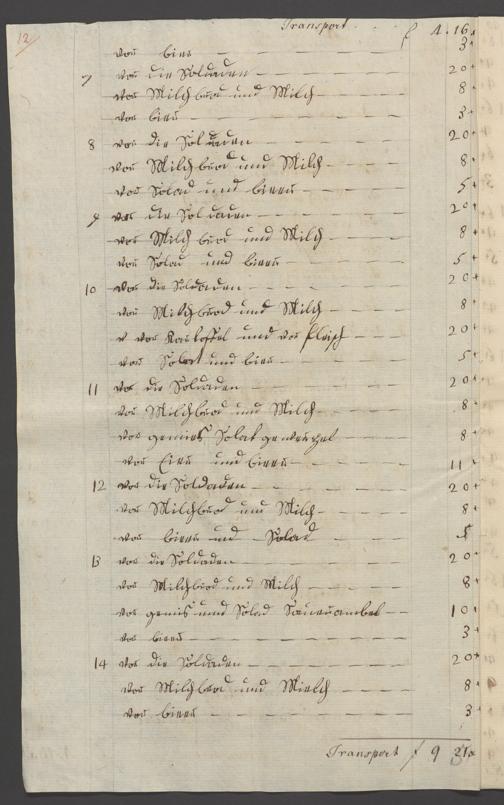 12
Transport f 4.16
vor bier 3
7 vor die Soldaden 20
vor Milchbrod und Milch 8
vor biern 3
8 vor die Soldaden 20
vor Milchbrod und Milch 8
vor Solad und biern 5
9 vor die Soldaden 20
vor Milchbrod und Milch 8
vor Solad und biern 5
10 vor die Soldaden 20
vor Milchbrod und Milch 8
v vor Kartoffel und vor fleisch 20
vor Solat und bier 5
11 vor die Soldaden 20
vor Milchbrod und Milch 8
vor gemies Solat 8
vor Eier und biern 11
12 vor die Soldaden 20
vor Milchbrod und Milch 8
vor biern und Solad 5
13 vor die Soldaden 20
vor Milchbrod und Milch 8
vor gemies und Solad 10
vor biern 3
14 vor die Soldaden 20
vor Milchbrod und Mielch 8
vor biern 3
Transport f 9